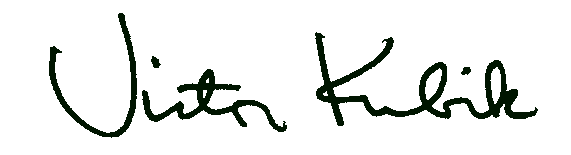 Victor Kubik